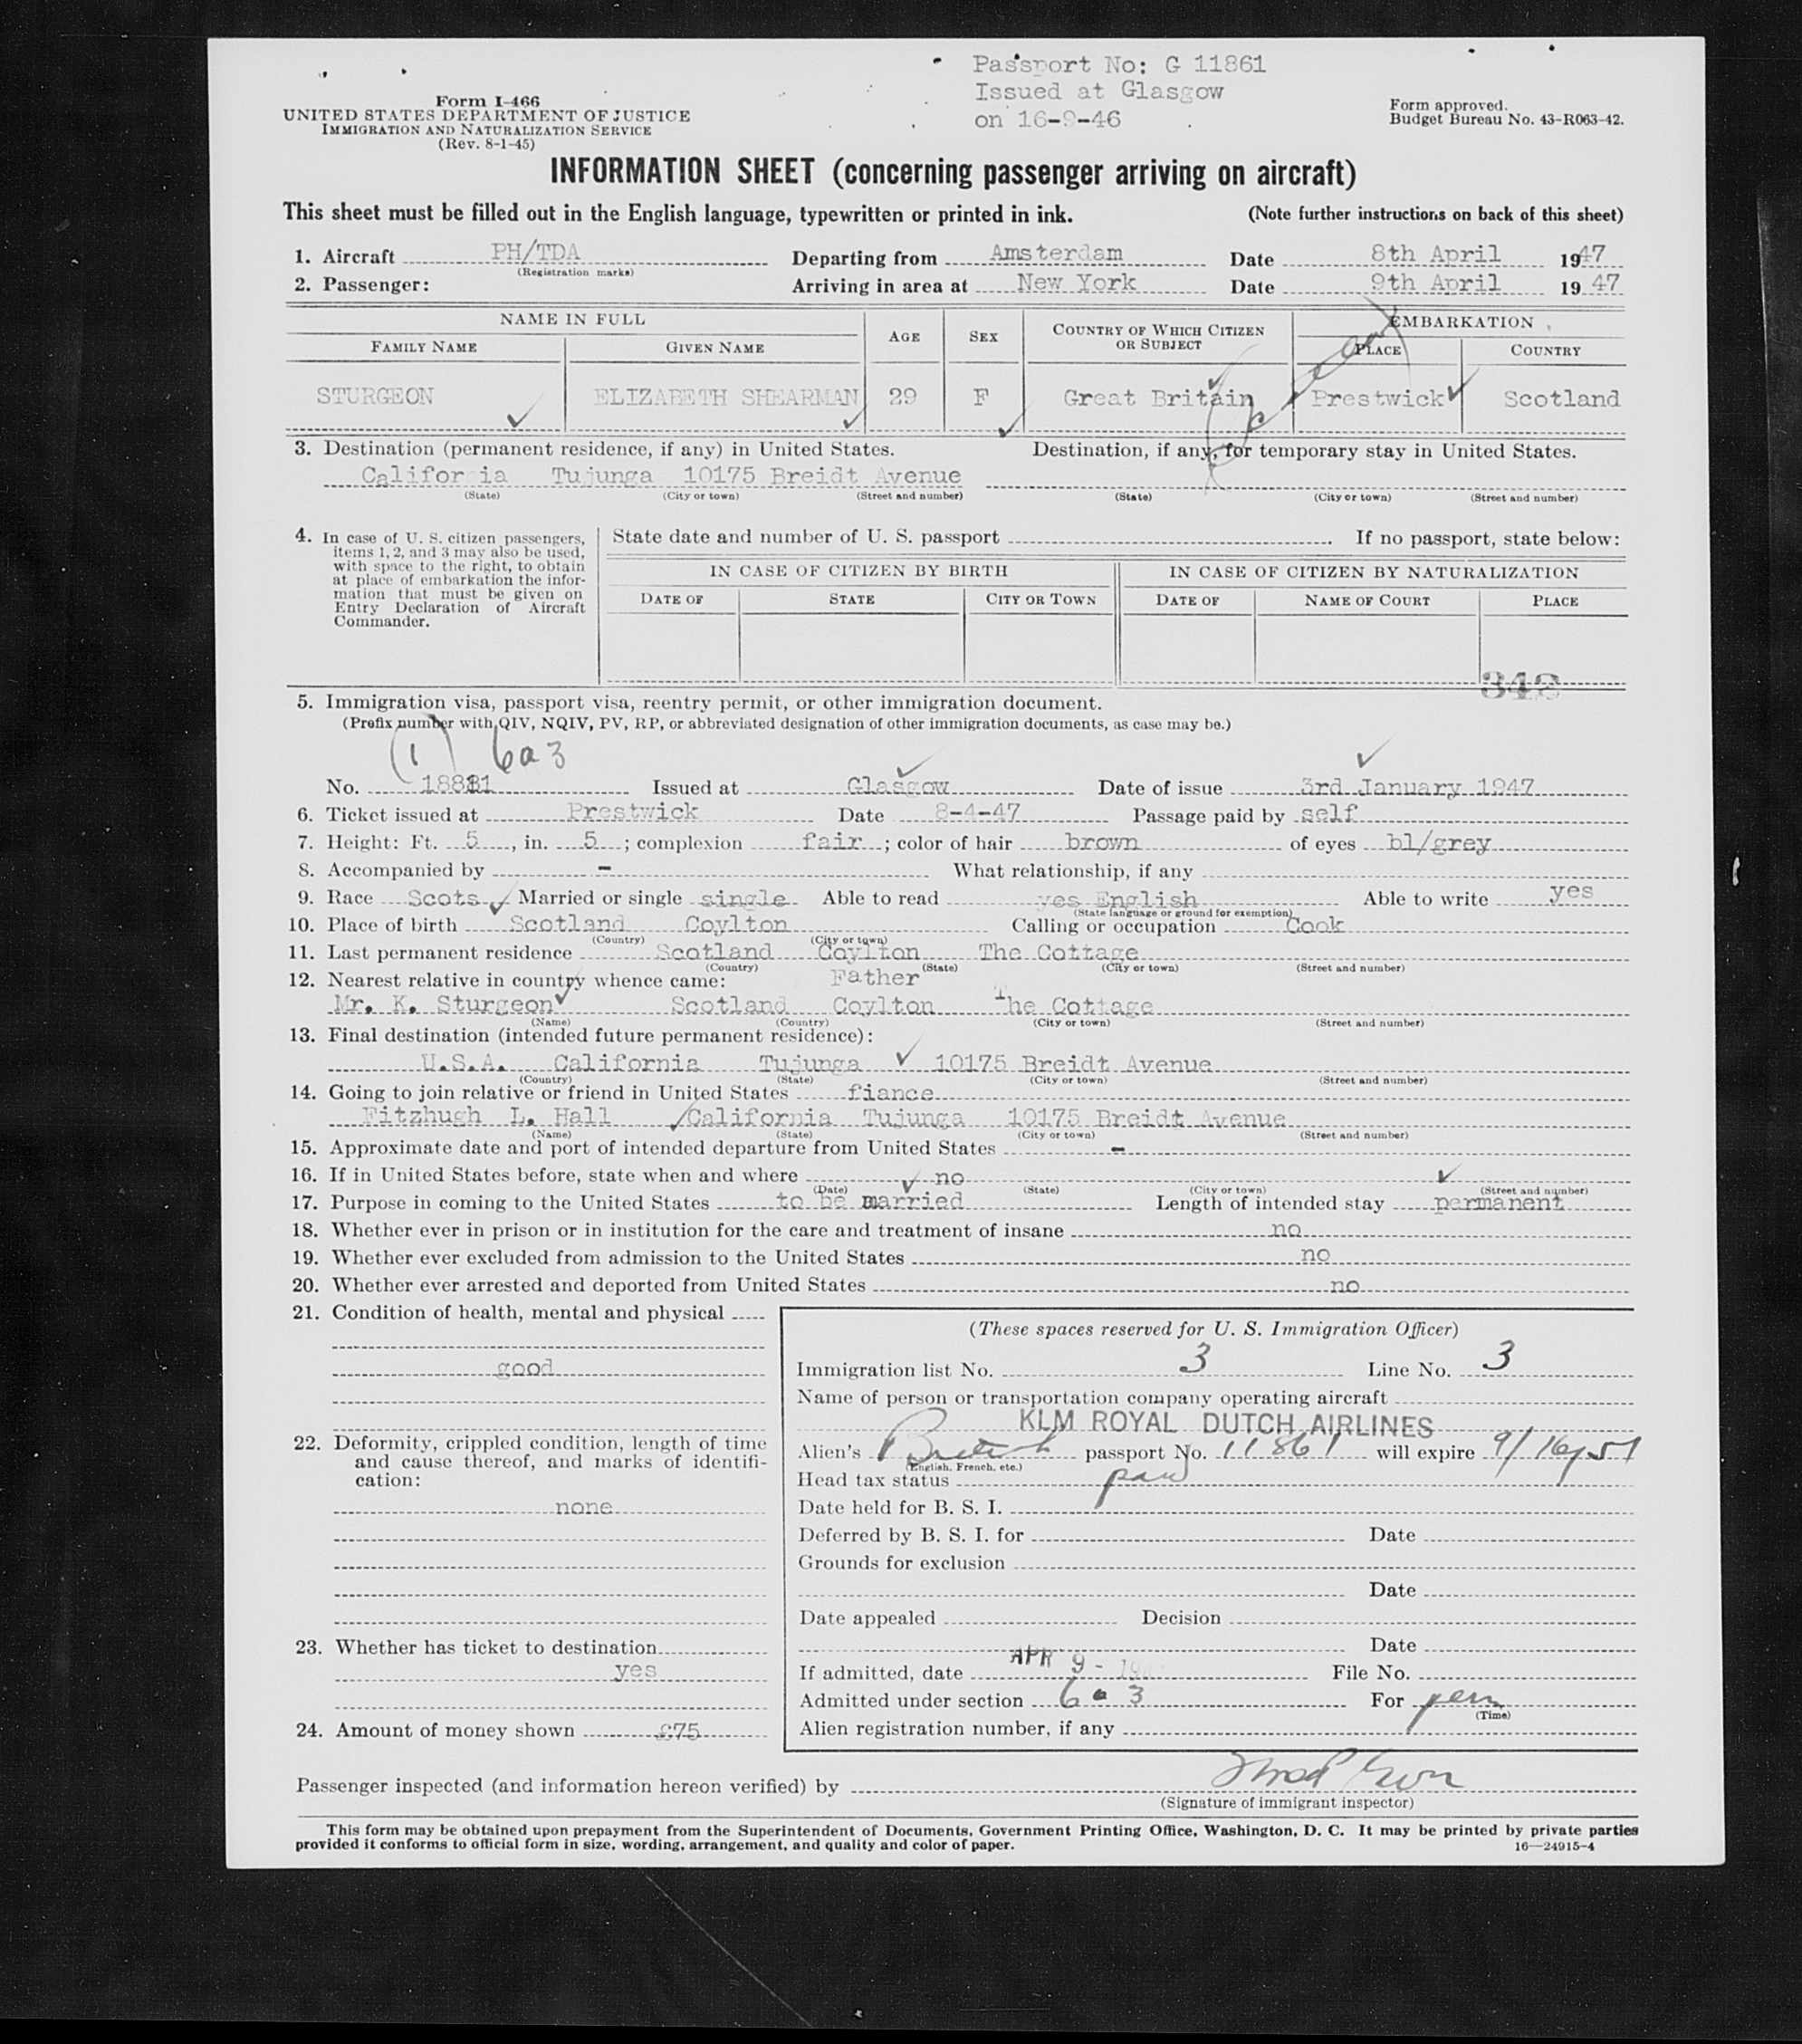 Passport No: G 11861
Issued at Glasgow
on 16-9-46
Form I-466
UNITED STATES DEPARTMENT OF JUSTICE
IMMIGRATION AND NATURALIZATION SERVICE
(Rev. 8-1-45)
Form approved.
Budget Bureau No. 43-R063-42.
INFORMATION SHEET (concerning passenger arriving on aircraft)
This sheet must be filled out in the English language, typewritten or printed in ink. (Note further instructions on back of this sheet)
1. Aircraft PH/TDA Departing from Amsterdam Date 8th April 1947
(Registration marks)
2. Passenger: Arriving in area at New York Date 9th April 1947
NAME IN FULL AGE SEX COUNTRY OF WHICH CITIZEN OR SUBJECT EMBARKATION
FAMILY NAME GIVEN NAME PLACE COUNTRY
STURGEON ELIZABETH SHEARMAN 29 F Great Britain Prestwick Scotland
3. Destination (permanent residence, if any) in United States. Destination, if any, for temporary stay in United States.
California Tujunga 10175 Breidt Avenue
(State) (City or town) (Street and number) (State) (City or town) (Street and number)
4. In case of U. S. citizen passengers, items 1, 2, and 3 may also be used, with space to the right, to obtain at place of embarkation the information that must be given on Entry Declaration of Aircraft Commander.
State date and number of U. S. passport If no passport, state below:
IN CASE OF CITIZEN BY BIRTH IN CASE OF CITIZEN BY NATURALIZATION
DATE OF STATE CITY OR TOWN DATE OF NAME OF COURT PLACE
348
5. Immigration visa, passport visa, reentry permit, or other immigration document.
(Prefix number with QIV, NQIV, PV, RP, or abbreviated designation of other immigration documents, as case may be.)
(1) 6a3
No. Issued at Glasgow Date of issue 3rd January 1947
6. Ticket issued at Prestwick Date 8-4-47 Passage paid by self
7. Height: Ft. 5, in. 5; complexion fair; color of hair brown of eyes bl/grey
8. Accompanied by - What relationship, if any
9. Race Scots Married or single single Able to read yes English Able to write yes
(State language or ground for exemption)
10. Place of birth Scotland Coylton Calling or occupation Cook
(Country) (City or town)
11. Last permanent residence Scotland Coylton The Cottage
(Country) (State) (City or town) (Street and number)
12. Nearest relative in country whence came: Father
Mr. K. Sturgeon Scotland Coylton The Cottage
(Name) (Country) (City or town) (Street and number)
13. Final destination (intended future permanent residence):
U.S.A. California Tujunga 10175 Breidt Avenue
(Country) (State) (City or town) (Street and number)
14. Going to join relative or friend in United States fiance
Fitzhugh L. Hall California Tujunga 10175 Breidt Avenue
(Name) (State) (City or town) (Street and number)
15. Approximate date and port of intended departure from United States -
16. If in United States before, state when and where no
(Date) (State) (City or town) (Street and number)
17. Purpose in coming to the United States to be married Length of intended stay permanent
18. Whether ever in prison or in institution for the care and treatment of insane no
19. Whether ever excluded from admission to the United States no
20. Whether ever arrested and deported from United States no
21. Condition of health, mental and physical
good
22. Deformity, crippled condition, length of time and cause thereof, and marks of identification:
none
23. Whether has ticket to destination
yes
24. Amount of money shown £75
(These spaces reserved for U. S. Immigration Officer)
Immigration list No. 3 Line No. 3
Name of person or transportation company operating aircraft
KLM ROYAL DUTCH AIRLINES
Alien's British passport No. 11861 will expire 9/16/51
(English, French, etc.)
Head tax status paid
Date held for B. S. I.
Deferred by B. S. I. for Date
Grounds for exclusion
Date
Date appealed Decision
Date
If admitted, date APR 9 - File No.
Admitted under section 6a3 For perm
(Time)
Alien registration number, if any
Passenger inspected (and information hereon verified) by
(Signature of immigrant inspector)
This form may be obtained upon prepayment from the Superintendent of Documents, Government Printing Office, Washington, D. C. It may be printed by private parties
provided it conforms to official form in size, wording, arrangement, and quality and color of paper. 16—24915-4